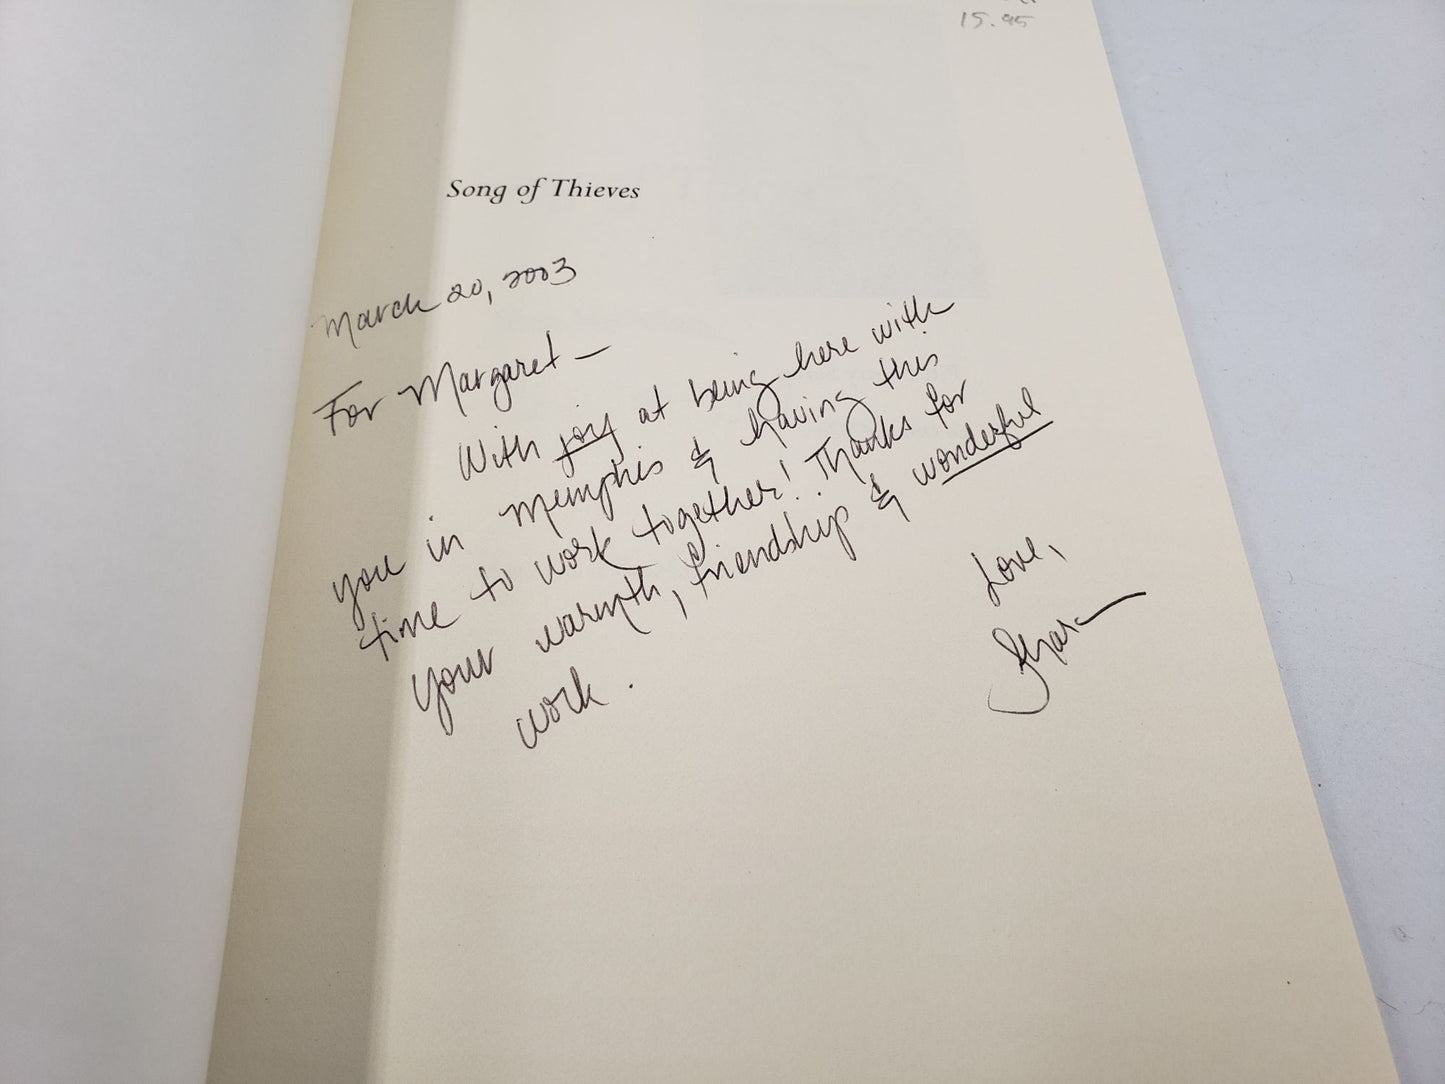 15.95
Song of Thieves
March 20, 2003
For Margaret —
With joy at being here with
you in Memphis & having this
time to work together! Thanks for
your warmth, friendship & wonderful
work.
Love,
Shara